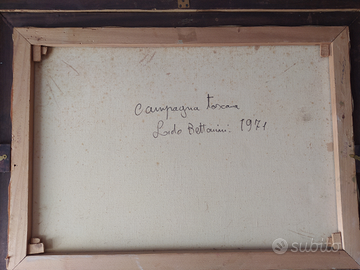 Campagna Toscana
Lido Bettarini. 1971
subito